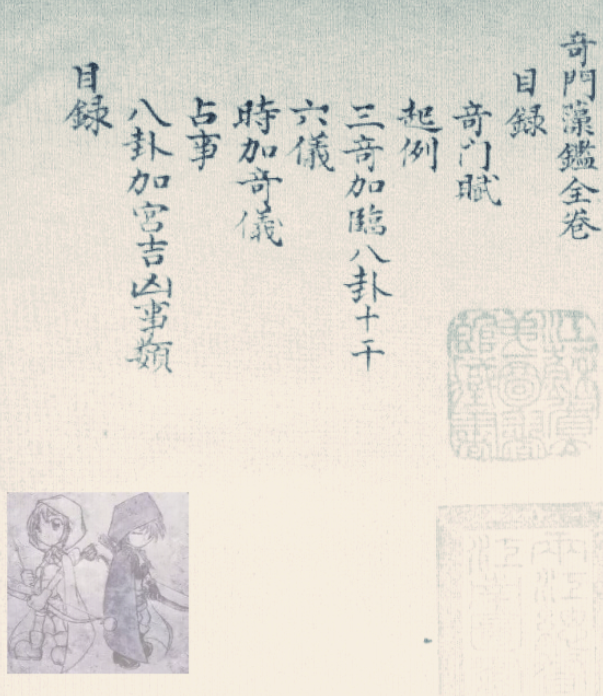 奇門藻鑑全巻
目録
奇门賦
起例
三奇加臨八卦十干
六儀
時加奇儀
占事
八卦加宮吉凶事類
目録